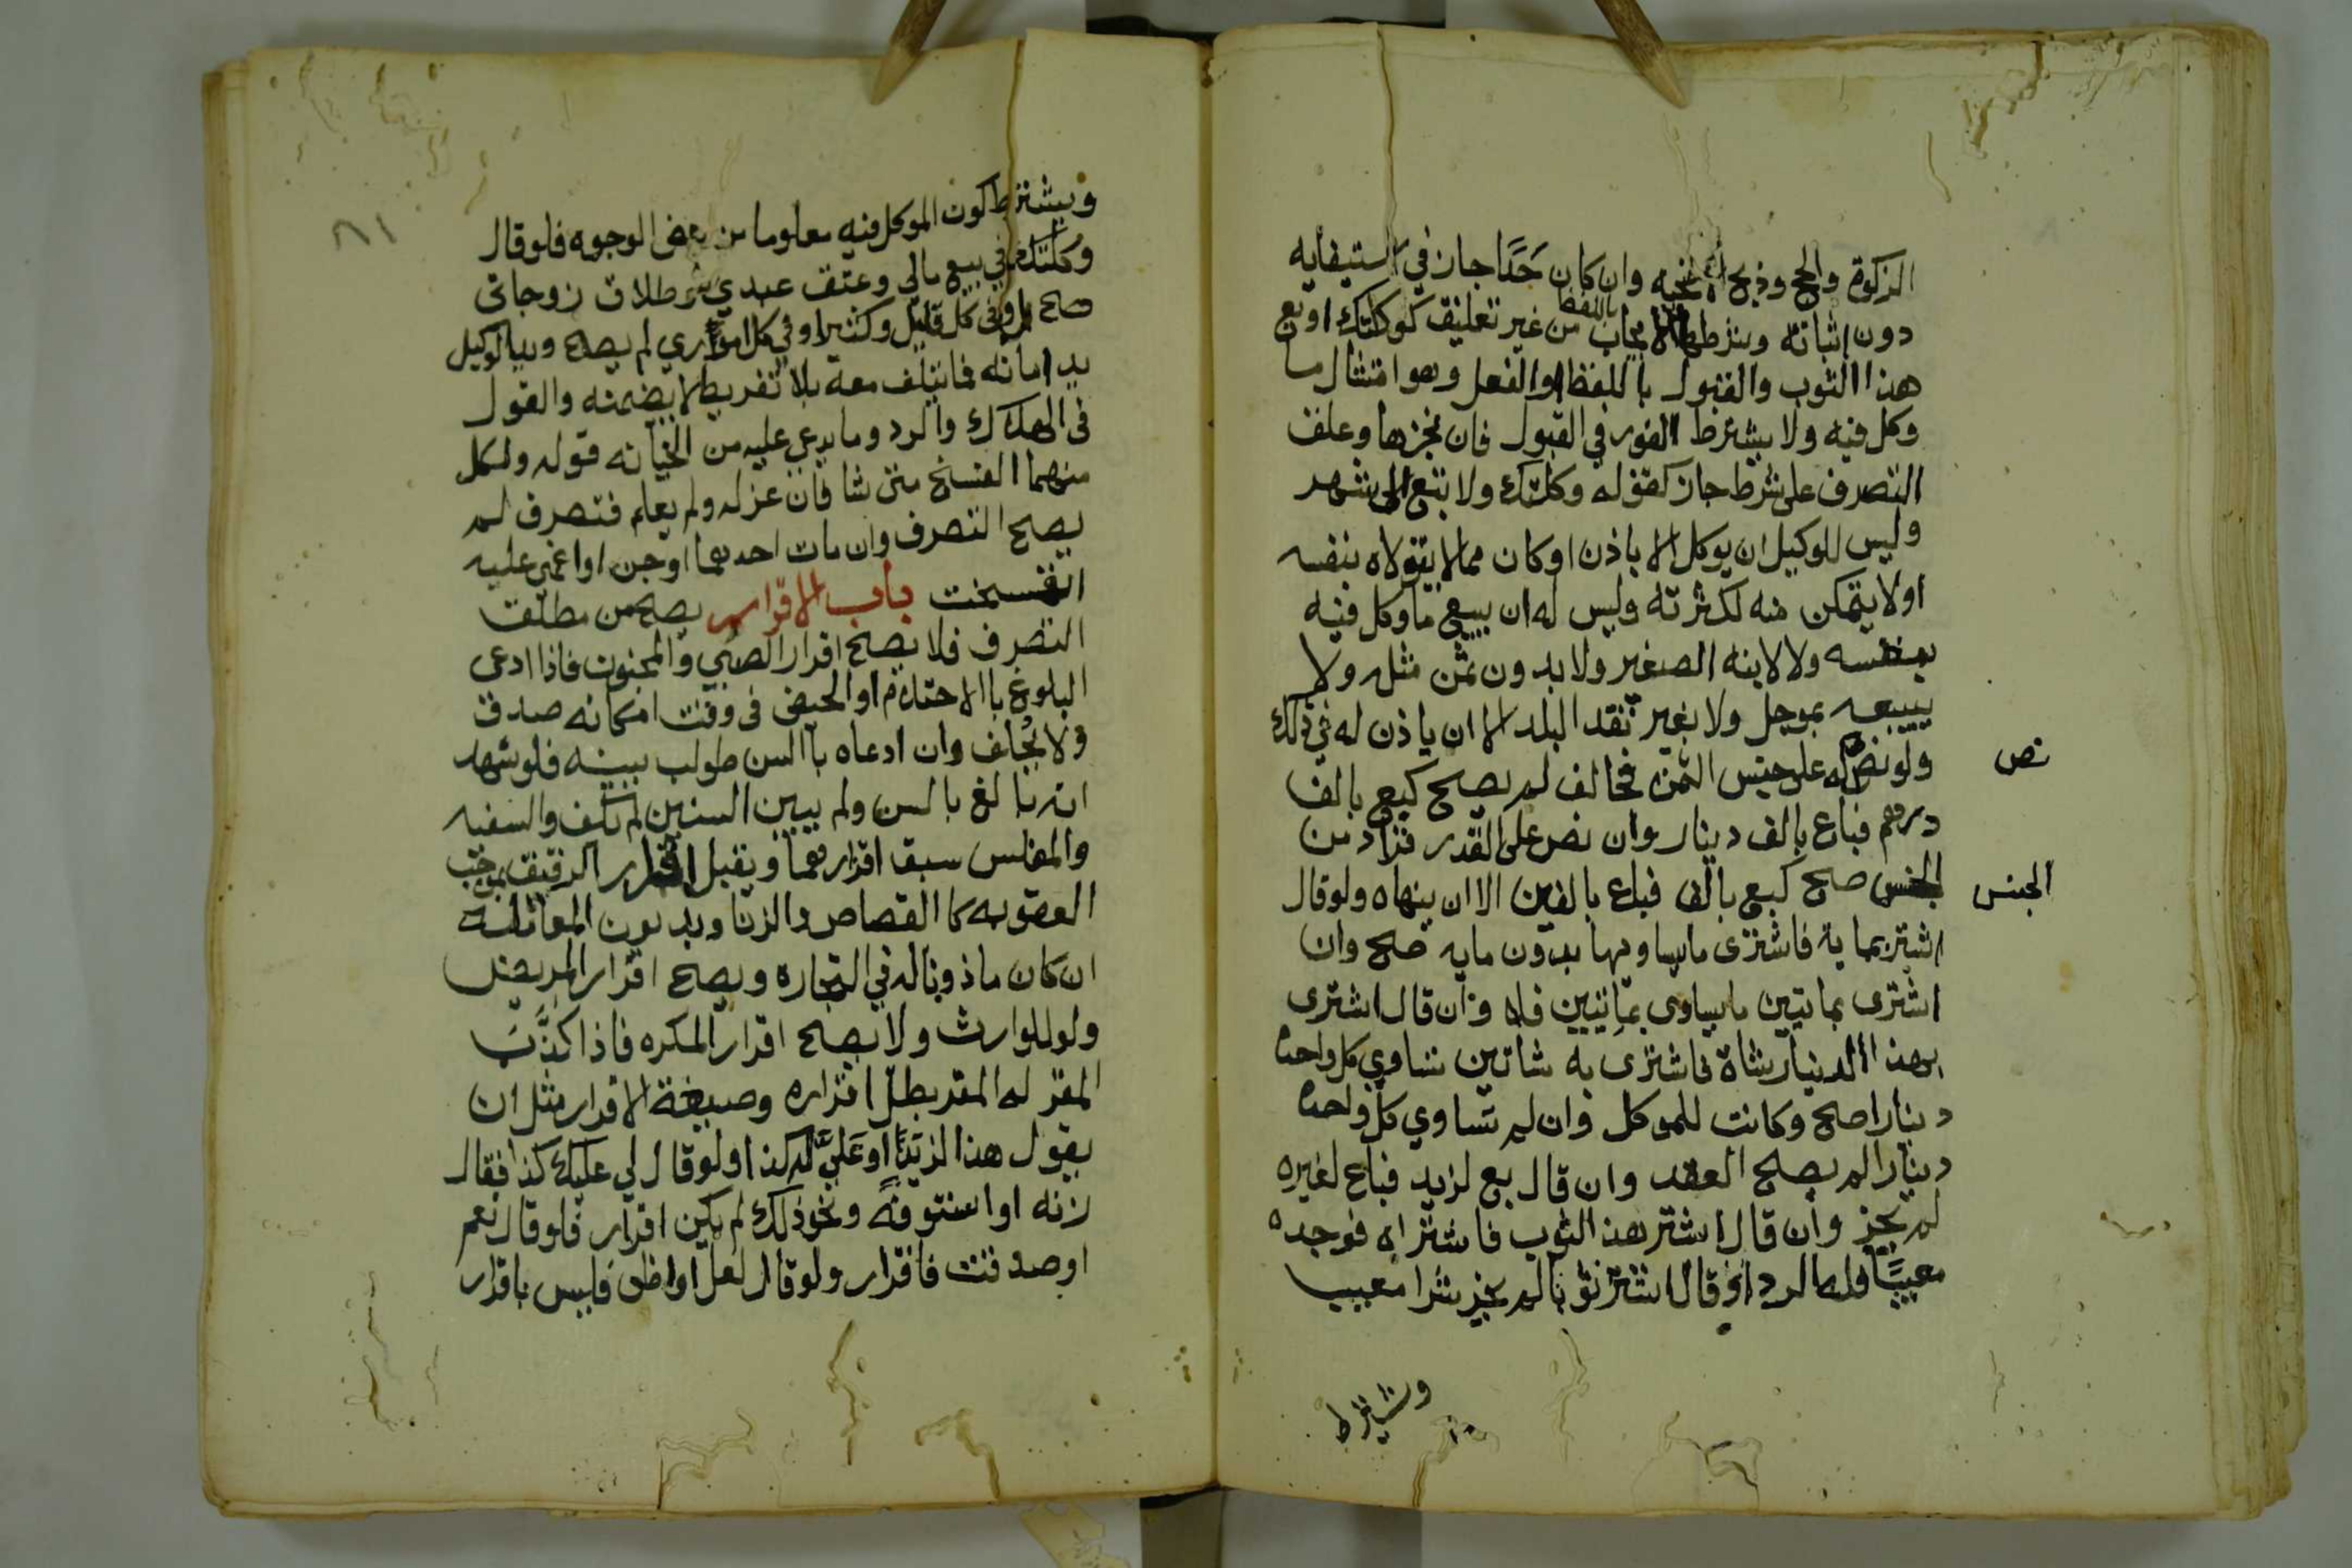 الزكوة والحج وذبح الاضحيه وان كان حَدًا جاز في استيفايه
دون اثباته وشرطها الايجاب باللفظ من غير تعليق كوكلتك او بع
هذا الثوب والقبول باللفظ او الفعل وهو امتثال ما
وكل فيه ولا يشترط الفور في القبول فان نجزها وعلق
التصرف على شرط جاز كقوله وكلتك ولا تبع الى شهر
وليس للوكيل ان يوكل الا باذن او كان مما لا يتولاه بنفسه
او لا يتمكن منه لكثرته وليس له ان يبيع ما وكل فيه
بنفسه ولا لابنه الصغير ولا بدون ثمن مثله ولا
يبيعه بموجل ولا بغير نقد البلد الا ان ياذن له في ذلك
ولو نص له على جنس الثمن فخالف لم يصح كبع بالف
نص
درهم فباع بالف دينار وان نص على القدر فزاد من
الجنس صح كبع بالف فباع بالفين الا ان ينهاه ولو قال
الجنس
اشتر بمايه فاشترى ما يساويها بدون مايه صح وان
اشترى بمايتين ما يساوي بمايتين فلا وان قال اشترى
بهذا الدينار شاة فاشترى به شاتين تساوي كل واحدة
دينارا صح وكانت للموكل وان لم تساوي كل واحدة
دينارا لم يصح العقد وان قال بع لزيد فباع لغيره
لم يجز وان قال اشتر هذا الثوب فاشتراه فوجده
معيبًا فله الرد او قال اشتر ثوبا لم يجز شرا معيب
وشترط
٨١
ويشترط كون الموكل فيه معلوما من بعض الوجوه فلو قال
وكلتك في بيع مالي وعتق عبدي وطلاق زوجاتي
صح او في كل قليل وكثير او في كل اموري لم يصح ويد الوكيل
يد امانه فما يتلف معه بلا تفريط لا يضمنه والقول
في الهلاك والرد وما يدعي عليه من الخيانه قوله ولكل
منهما الفسخ متى شا فان عزله ولم يعلم فتصرف لم
يصح التصرف وان مات احدهما او جن او اغمي عليه
انفسخت باب الاقرار يصح من مطلق
التصرف فلا يصح اقرار الصبي والمجنون فاذا ادعى
البلوغ باالاحتلام او الحيض في وقت امكانه صدق
ولا يُحلف وان ادعاه باالسن طولب ببينه فلو شهد
انه بالغ بالسن ولم يبين السنين لم تكف والسفيه
والمفلس سبق اقرارهما ويقبل اقرار الرقيق بموجب
العقوبه كا القصاص والزنا وبديون المعاملة
ان كان ماذونا له في التجاره ويصح اقرار المريض
ولو للوارث ولا يصح اقرار المكره فاذا كذَّبَ
المقر له المقر بطل اقراره وصيغة الاقرار مثل ان
يقول هذا لزيد او عَليَّ له كذا ولو قال لي عليك كذا فقال
زنه او استوفه ونحو ذلك لم يكن اقرار فلو قال نعم
او صدقت فاقرار ولو قال لعل او اظن فليس باقرار